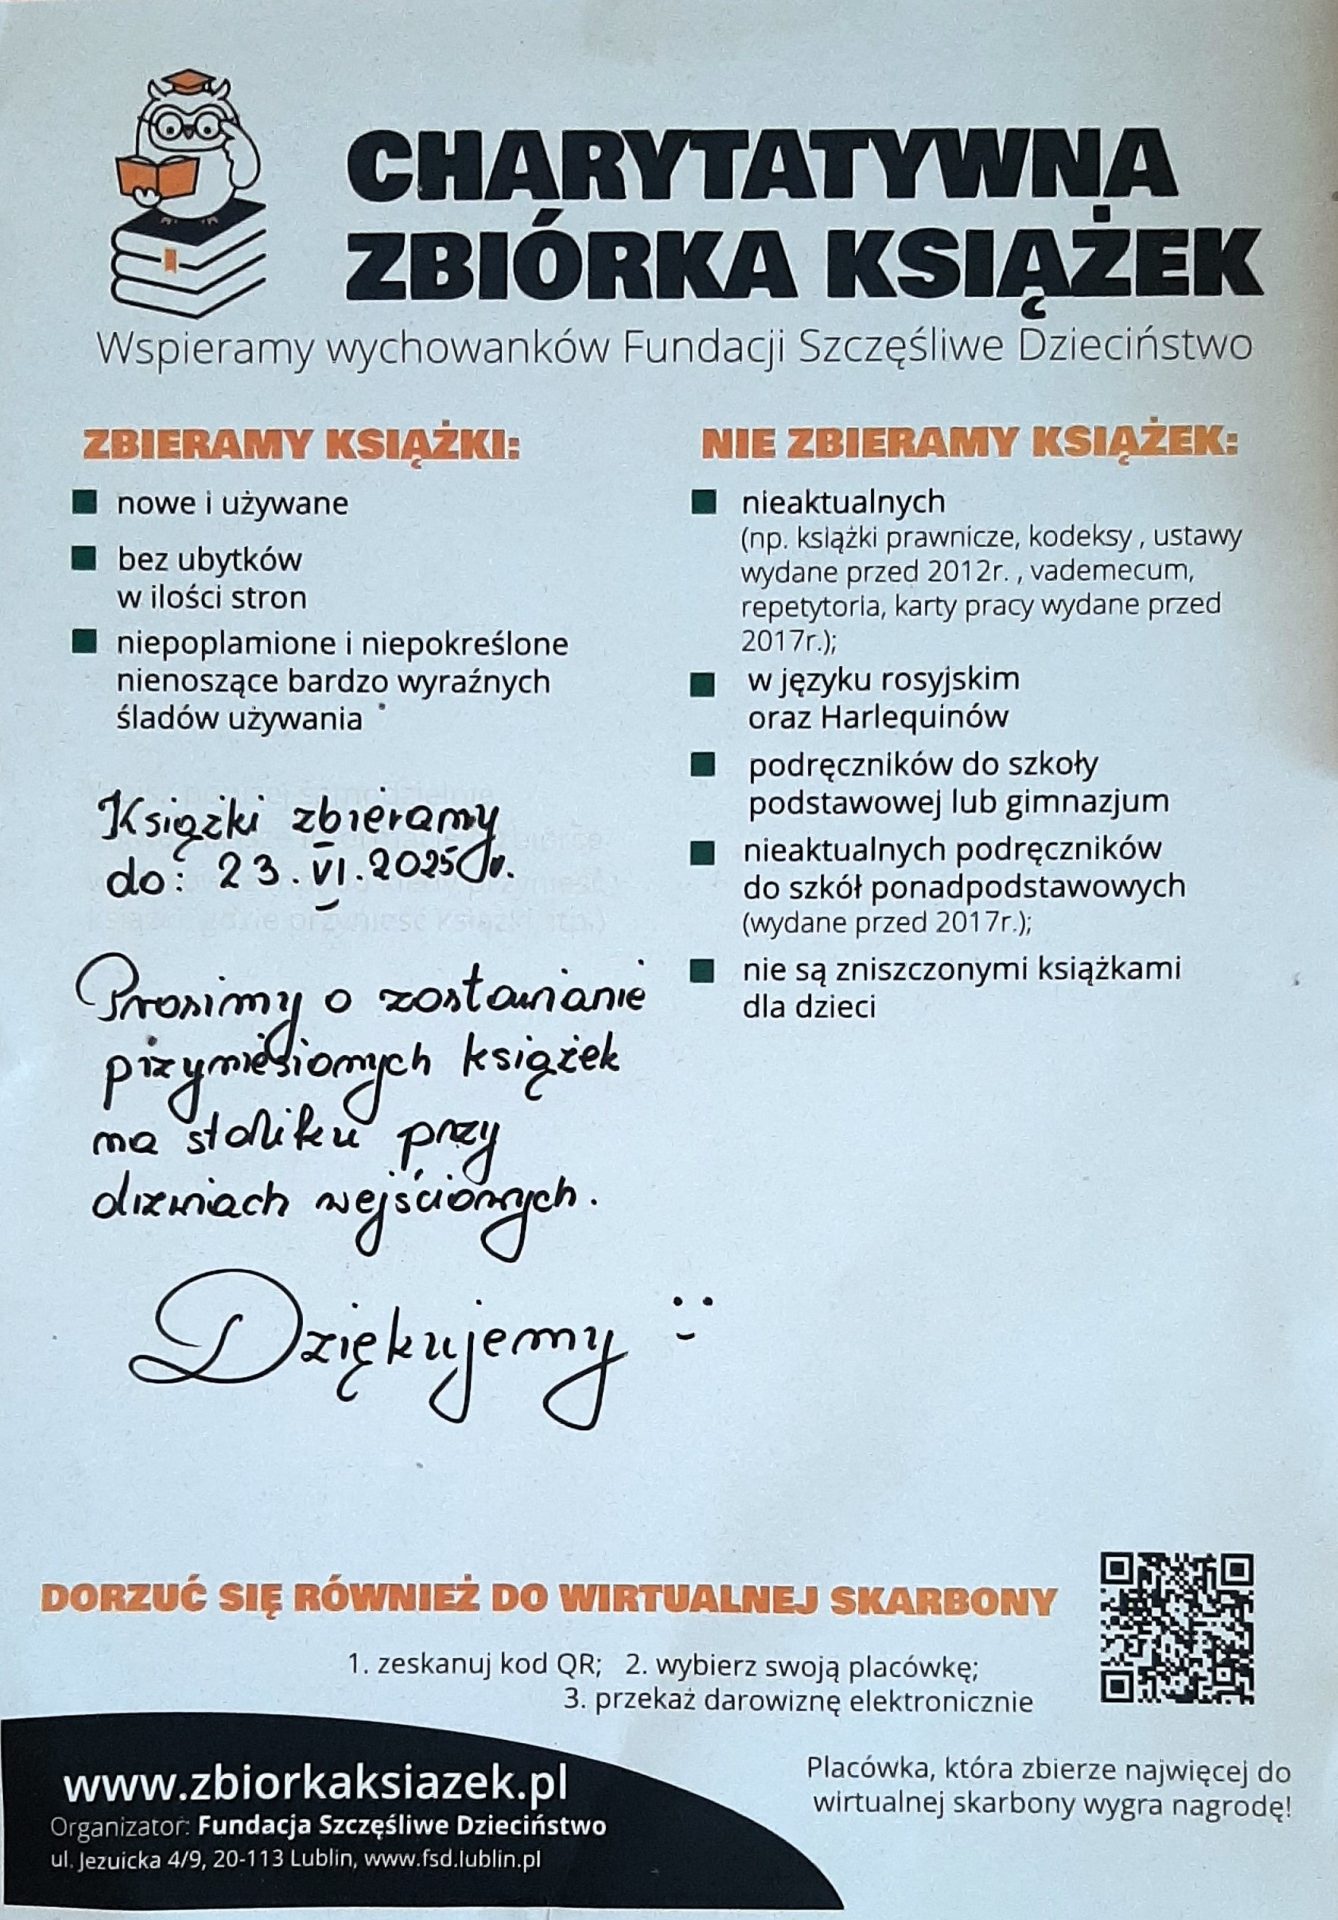 CHARYTATYWNA
ZBIÓRKA KSIĄŻEK
Wspieramy wychowanków Fundacji Szczęśliwe Dzieciństwo
ZBIERAMY KSIĄŻKI:
nowe i używane
bez ubytków
w ilości stron
niepoplamione i niepokreślone
nienoszące bardzo wyraźnych
śladów używania
Książki zbieramy
do: 23.VI.2025r.
Prosimy o zostawianie
przyniesionych książek
na stoliku przy
drzwiach wejściowych.
Dziękujemy
NIE ZBIERAMY KSIĄŻEK:
nieaktualnych
(np. książki prawnicze, kodeksy , ustawy
wydane przed 2012r. , vademecum,
repetytoria, karty pracy wydane przed
2017r.);
w języku rosyjskim
oraz Harlequinów
podręczników do szkoły
podstawowej lub gimnazjum
nieaktualnych podręczników
do szkół ponadpodstawowych
(wydane przed 2017r.);
nie są zniszczonymi książkami
dla dzieci
DORZUĆ SIĘ RÓWNIEŻ DO WIRTUALNEJ SKARBONY
1. zeskanuj kod QR; 2. wybierz swoją placówkę;
3. przekaż darowiznę elektronicznie
www.zbiorkaksiazek.pl
Organizator: Fundacja Szczęśliwe Dzieciństwo
ul. Jezuicka 4/9, 20-113 Lublin, www.fsd.lublin.pl
Placówka, która zbierze najwięcej do
wirtualnej skarbony wygra nagrodę!